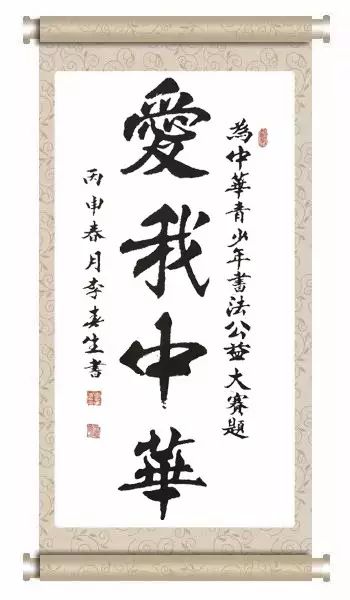 為中華青少年書法公益大賽題
愛我中華
丙申春月李春生書